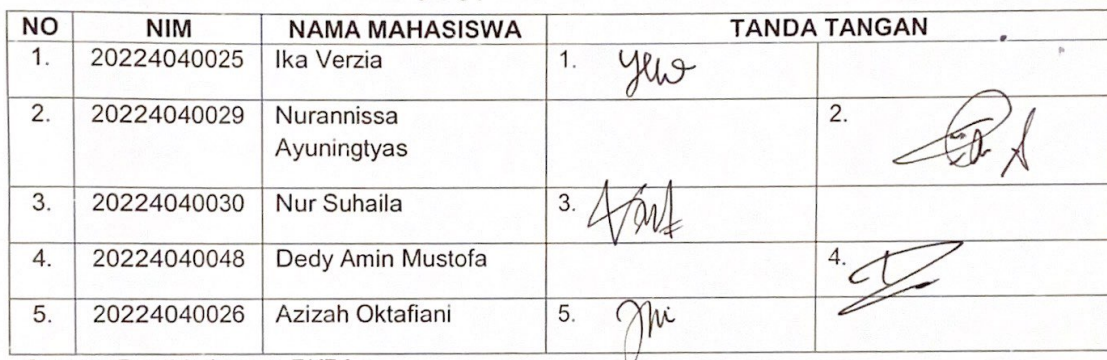 NO NIM NAMA MAHASISWA TANDA TANGAN
1. 20224040025 Ika Verzia 1.
2. 20224040029 Nurannissa 2.
Ayuningtyas
3. 20224040030 Nur Suhaila 3.
4. 20224040048 Dedy Amin Mustofa 4.
5. 20224040026 Azizah Oktafiani 5.